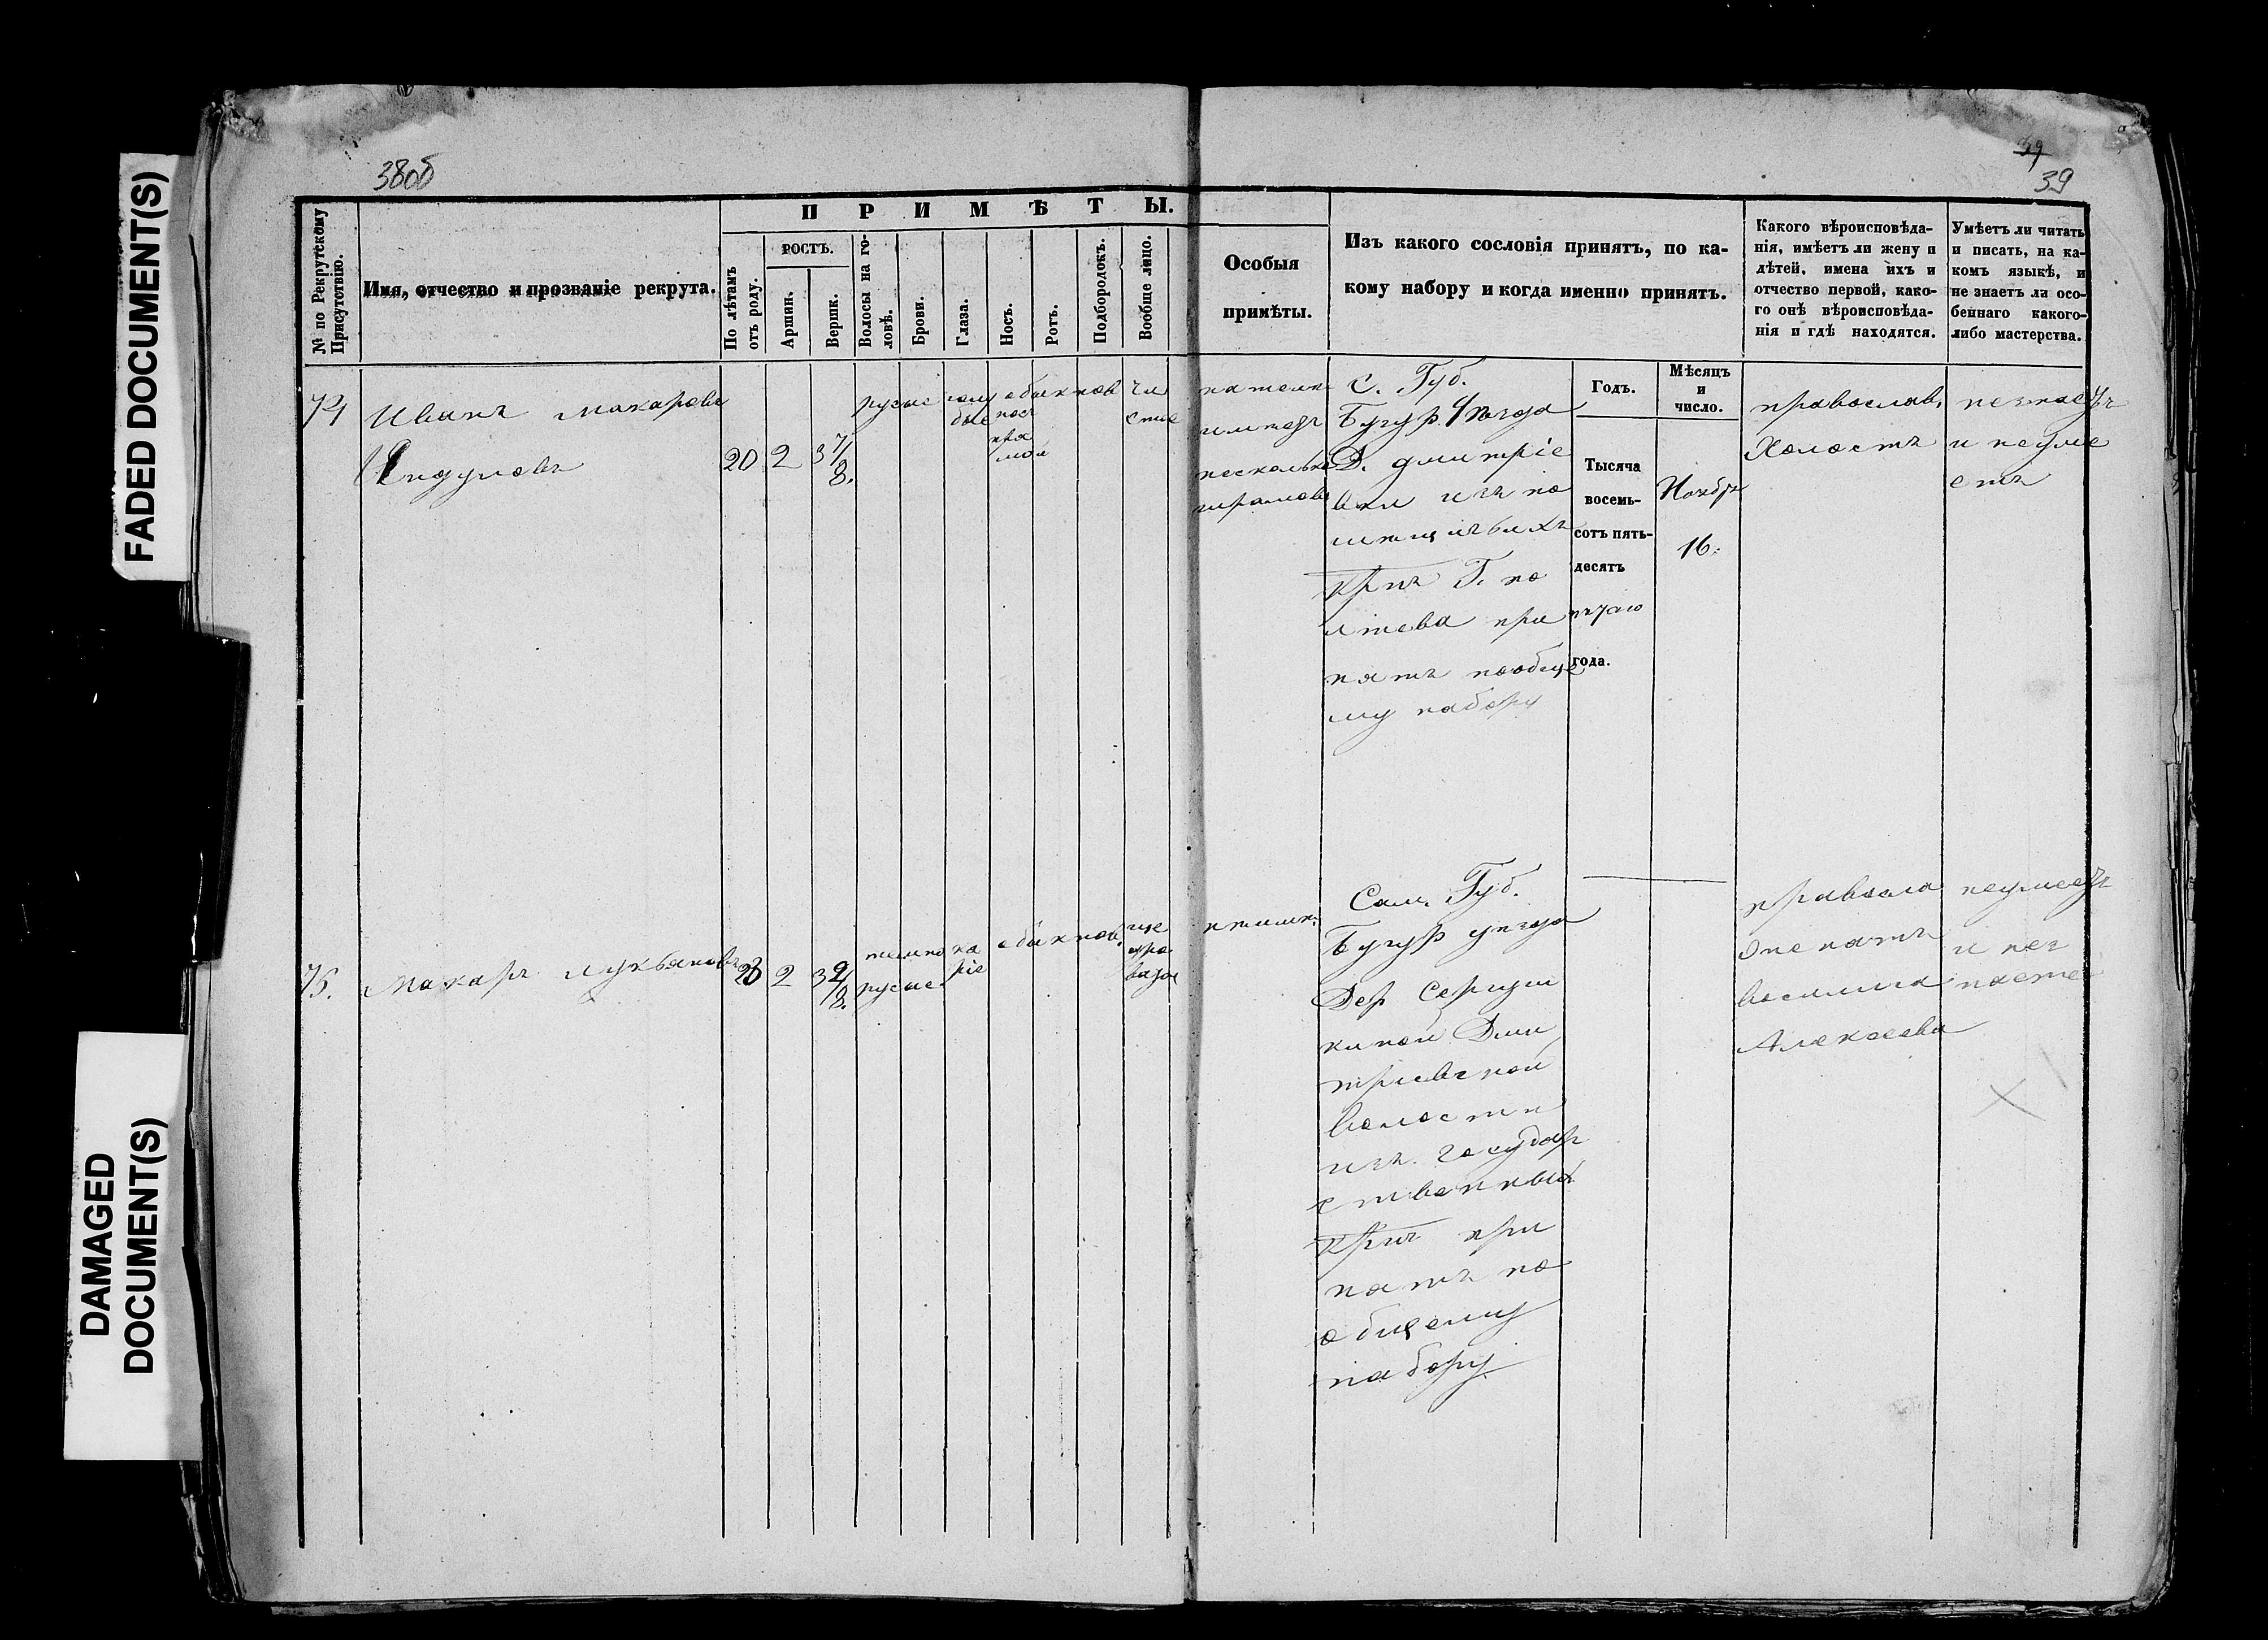 FADED DOCUMENT(S)
DAMAGED
DOCUMENT(S)
38об
39
39
№ по Рекрутскому
Присутствію.
Имя, отчество и прозваніе рекрута.
ПРИМѢТЫ.
По лѣтамъ
отъ роду.
РОСТЪ.
Аршин.
Вершк.
Волосы на го-
ловѣ.
Брови.
Глаза.
Носъ.
Ротъ.
Подбородокъ.
Вообще лицо.
Особыя
примѣты.
Изъ какого сословія принятъ, по ка-
кому набору и когда именно принятъ.
Какого вѣроисповѣда-
нія, имѣетъ ли жену и
дѣтей, имена ихъ и
отчество первой, како-
го онѣ вѣроисповѣда-
нія и гдѣ находятся.
Умѣетъ ли читать
и писать, на ка-
комъ языкѣ, и
не знаетъ ли осо-
беннаго какого-
либо мастерства.
74
Иванъ Макаровъ
20
2
3 7/8.
русые
голу
бые
обыкнов
нос
пря
мой
чи
стое
несколько
шрамовъ
С. Губ.
Бугур. Уѣзда
Д. Дмитріе
вки изъ по
мѣщичьихъ
крнъ Г.
при
нятъ пообще
му набору
Годъ.
Тысяча
восемь-
сотъ пять-
десятъ
года.
Мѣсяцъ
и
число.
Ноябр
16.
православ.
Холостъ
незнаетъ
и неуме
етъ
75.
Макаръ Лукьяновъ
23
2
темно
русые
ка
ріе
обыкнов.
Сам. Губ.
Бугур уезда
Дер
киной Дми
тріевской
волости
изъ государ
ственныхъ
крнъ при
нятъ по
общему
набору
правосла
женатъ
василиса
Алексеева
неумеетъ
и нез
наетъ